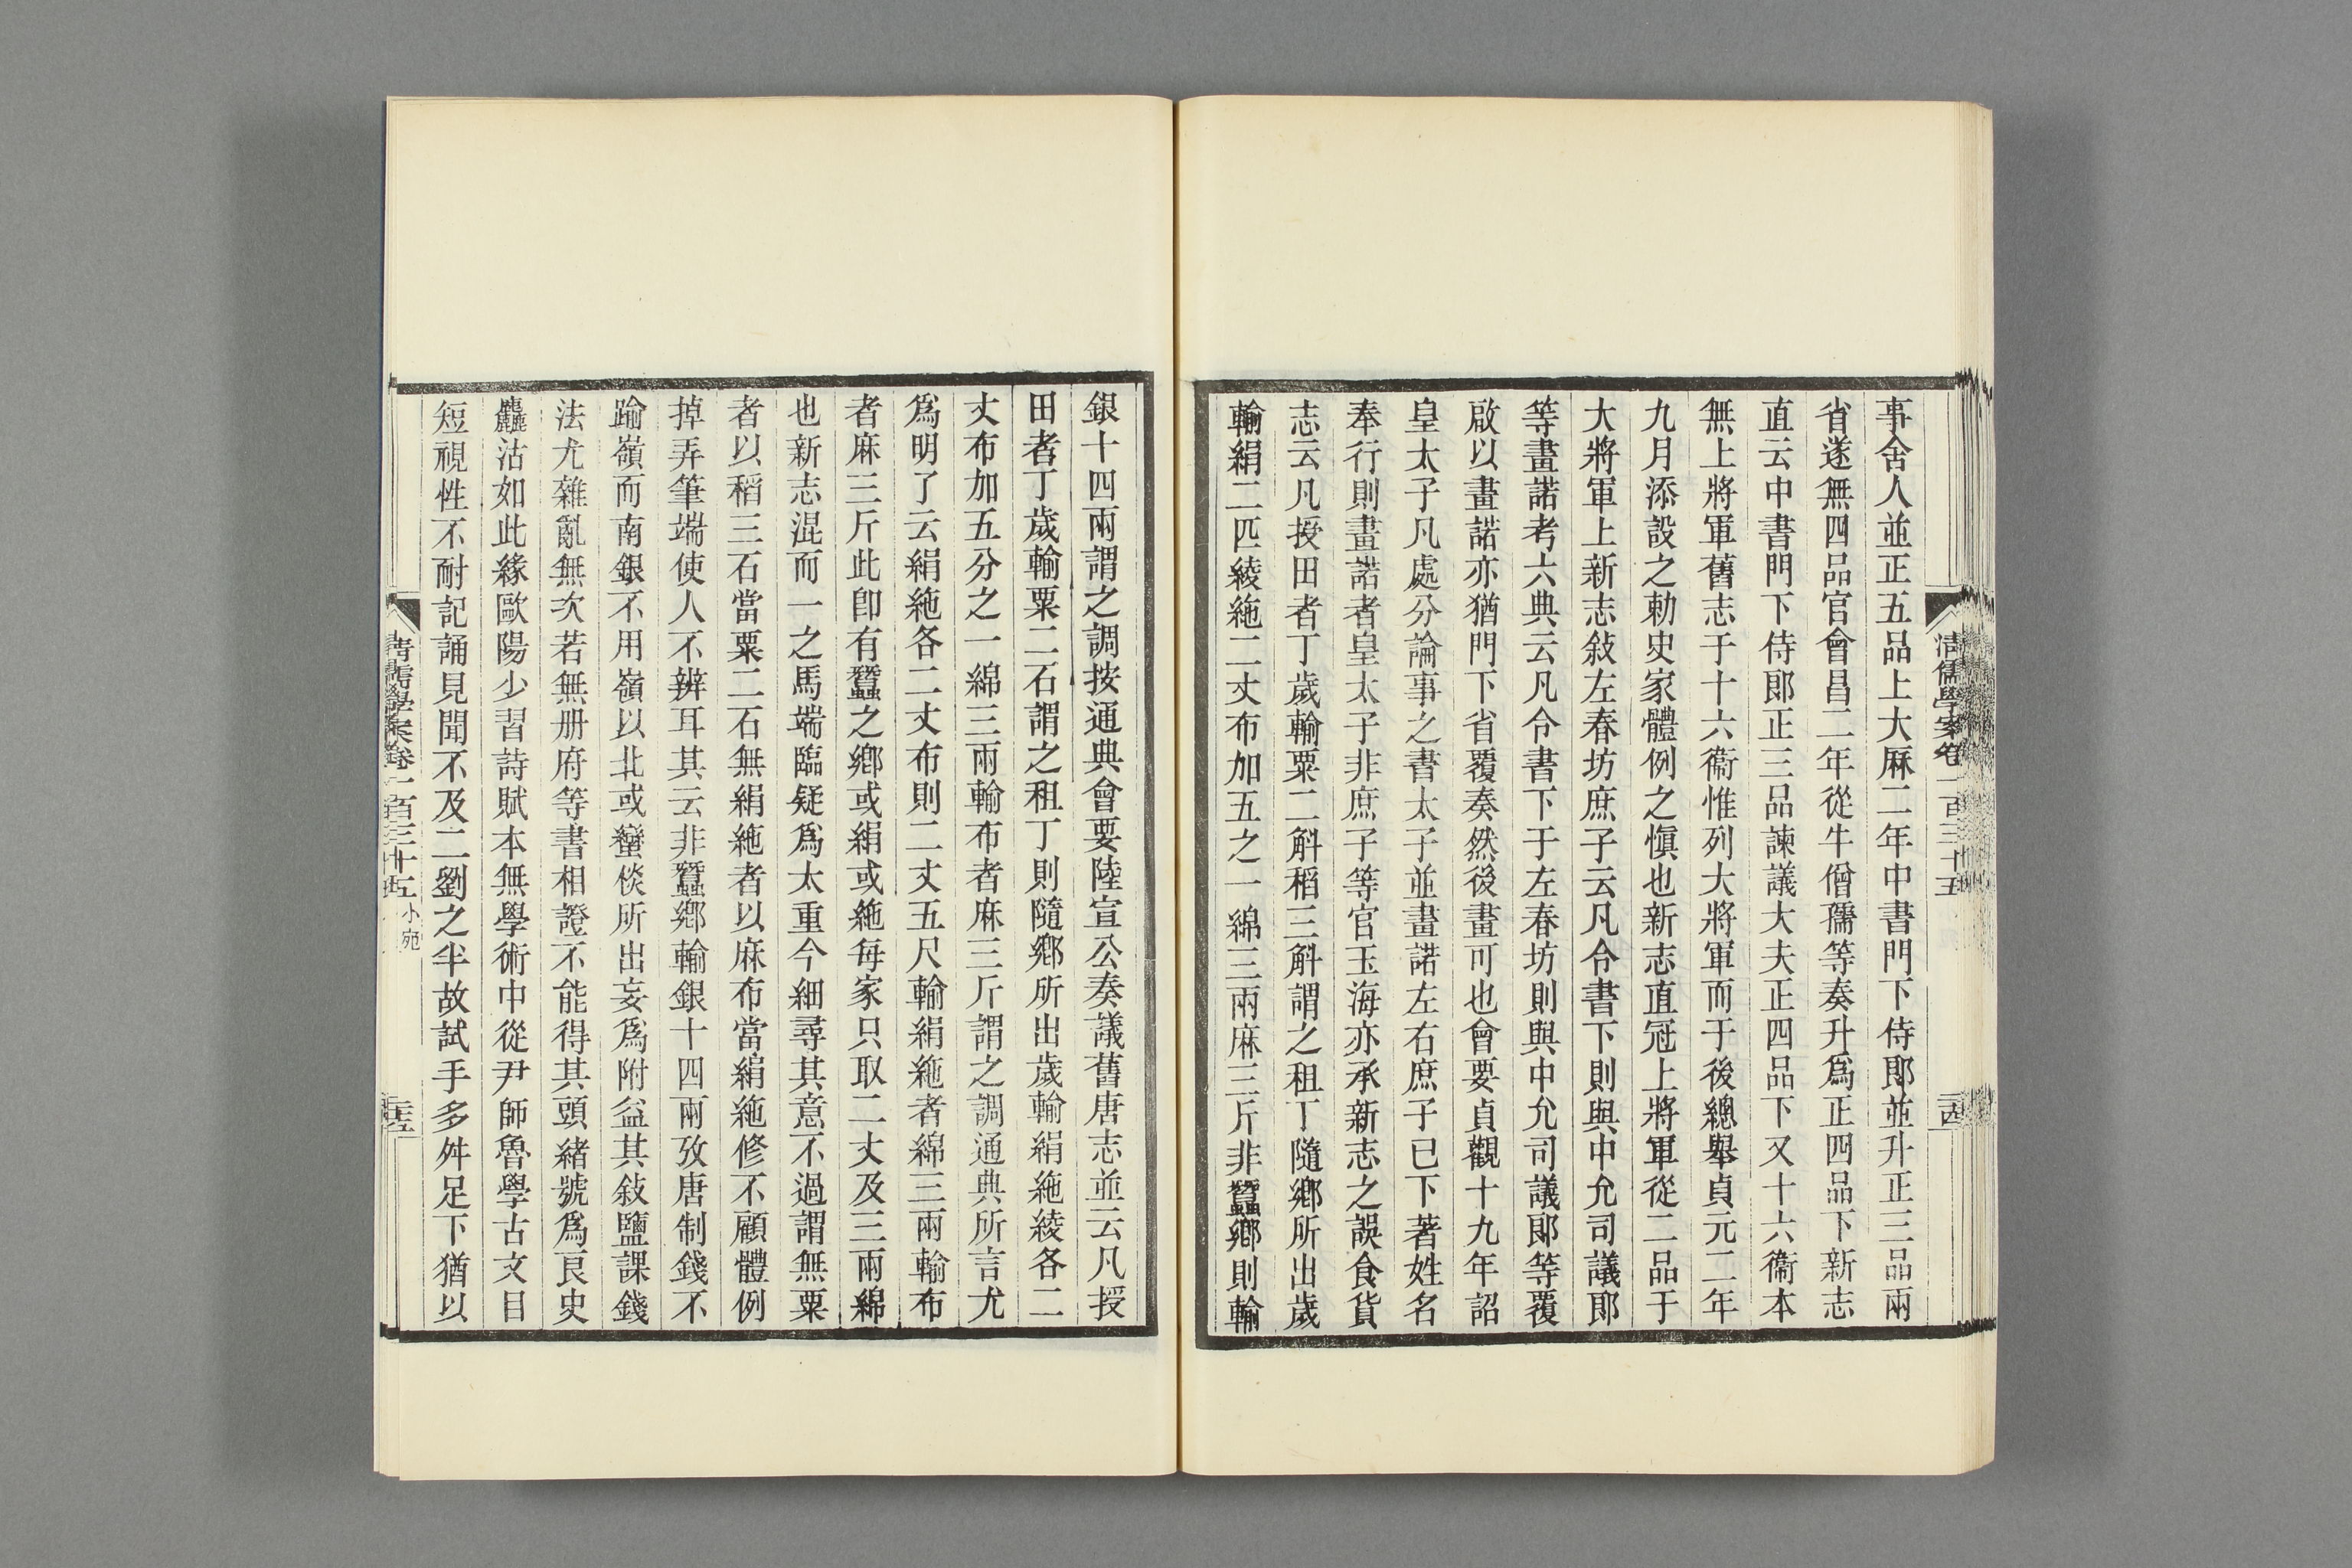 清儒學案卷一百三十五
二四
事舍人並正五品上大厤二年中書門下侍郎並升正三品兩
省遂無四品官會昌二年從牛僧孺等奏升爲正四品下新志
直云中書門下侍郎正三品諫議大夫正四品下又十六衞本
無上將軍舊志于十六衞惟列大將軍而于後總舉貞元二年
九月添設之勅史家體例之愼也新志直冠上將軍從二品于
大將軍上新志敍左春坊庶子云凡令書下則與中允司議郎
等畫諾考六典云凡令書下于左春坊則與中允司議郎等覆
啟以畫諾亦猶門下省覆奏然後畫可也會要貞觀十九年詔
皇太子凡處分論事之書太子並畫諾左右庶子已下著姓名
奉行則畫諾者皇太子非庶子等官玉海亦承新志之誤食貨
志云凡授田者丁歲輸粟二斛稻三斛謂之租丁隨鄉所出歲
輸絹二匹綾絁二丈布加五之一綿三兩麻三斤非蠶鄉則輸
銀十四兩謂之調按通典會要陸宣公奏議舊唐志並云凡授
田者丁歲輸粟二石謂之租丁則隨鄉所出歲輸絹絁綾各二
丈布加五分之一綿三兩輸布者麻三斤謂之調通典所言尤
爲明了云絹絁各二丈布則二丈五尺輸絹絁者綿三兩輸布
者麻三斤此卽有蠶之鄉或絹或絁每家只取二丈及三兩綿
也新志混而一之馬端臨疑爲太重今細尋其意不過謂無粟
者以稻三石當粟二石無絹絁者以麻布當絹絁修不顧體例
掉弄筆端使人不辨耳其云非蠶鄉輸銀十四兩攷唐制錢不
踰嶺而南銀不用嶺以北或蠻倓所出妄爲附益其敍鹽課錢
法尤雜亂無次若無册府等書相證不能得其頭緒號爲良史
麤沽如此緣歐陽少習詩賦本無學術中從尹師魯學古文目
短視性不耐記誦見聞不及二劉之半故試手多舛足下猶以
清儒學案卷一百三十五 小宛
二五